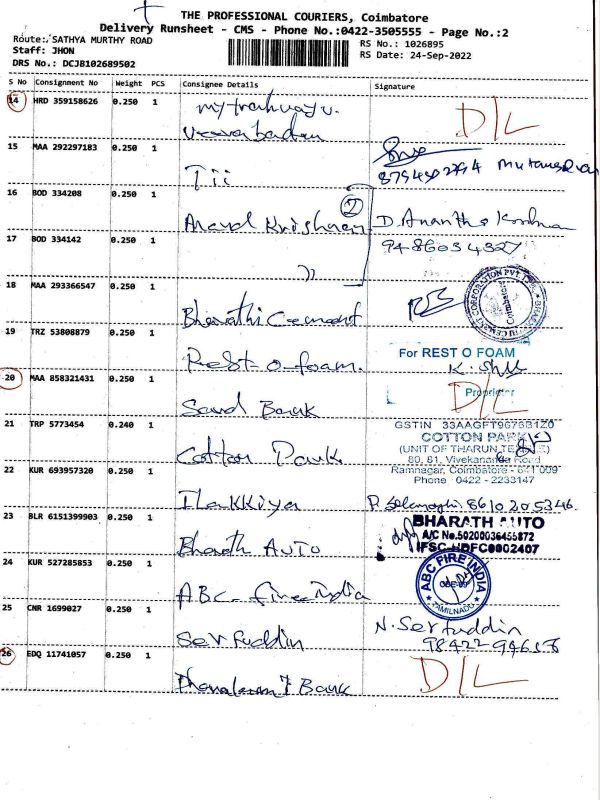 THE PROFESSIONAL COURIERS, Coimbatore
Delivery Runsheet - CMS - Phone No.:0422-3505555 - Page No.:2
Route: SATHYA MURTHY ROAD
Staff: JHON
DRS No.: DCJB102689502
RS No.: 1026895
RS Date: 24-Sep-2022
S No Consignment No Weight PCS Consignee Details Signature
14 HRD 359158626 0.250 1 D/L
15 MAA 292297183 0.250 1
Tii
16 BOD 334208 0.250 1 2
Anand Krishnan D. Anantha Krishna
17 BOD 334142 0.250 1 9486034327
"
18 MAA 293366547 0.250 1
Bharathi Cement
Coimbatore
19 TRZ 53808879 0.250 1 For REST O FOAM
Rest-o-foam.
Proprietor
20 MAA 858321431 0.250 1 D/L
Saud Bank
21 TRP 5773454 0.240 1 GSTIN 33AAGFT9676B1Z0
COTTON PARK
(UNIT OF THARUN TEX
Cotton Park 80, 81, Vivekananda Road
Ramnagar, Coimbatore - 641 009
22 KUR 693957320 0.250 1 Phone : 0422 - 2233147
Ilakkiya
23 BLR 6151399903 0.250 1 BHARATH AUTO
A/C No.50200036455872
Bharath Auto IFSC-HDFC0002407
24 KUR 527285853 0.250 1 ABC FIRE INDIA
TAMILNADU
ABC - fire india
25 CNR 1699027 0.250 1
Serfuddin N. Serfuddin
98422-94618
26 EDQ 11741057 0.250 1 D/L
Bank